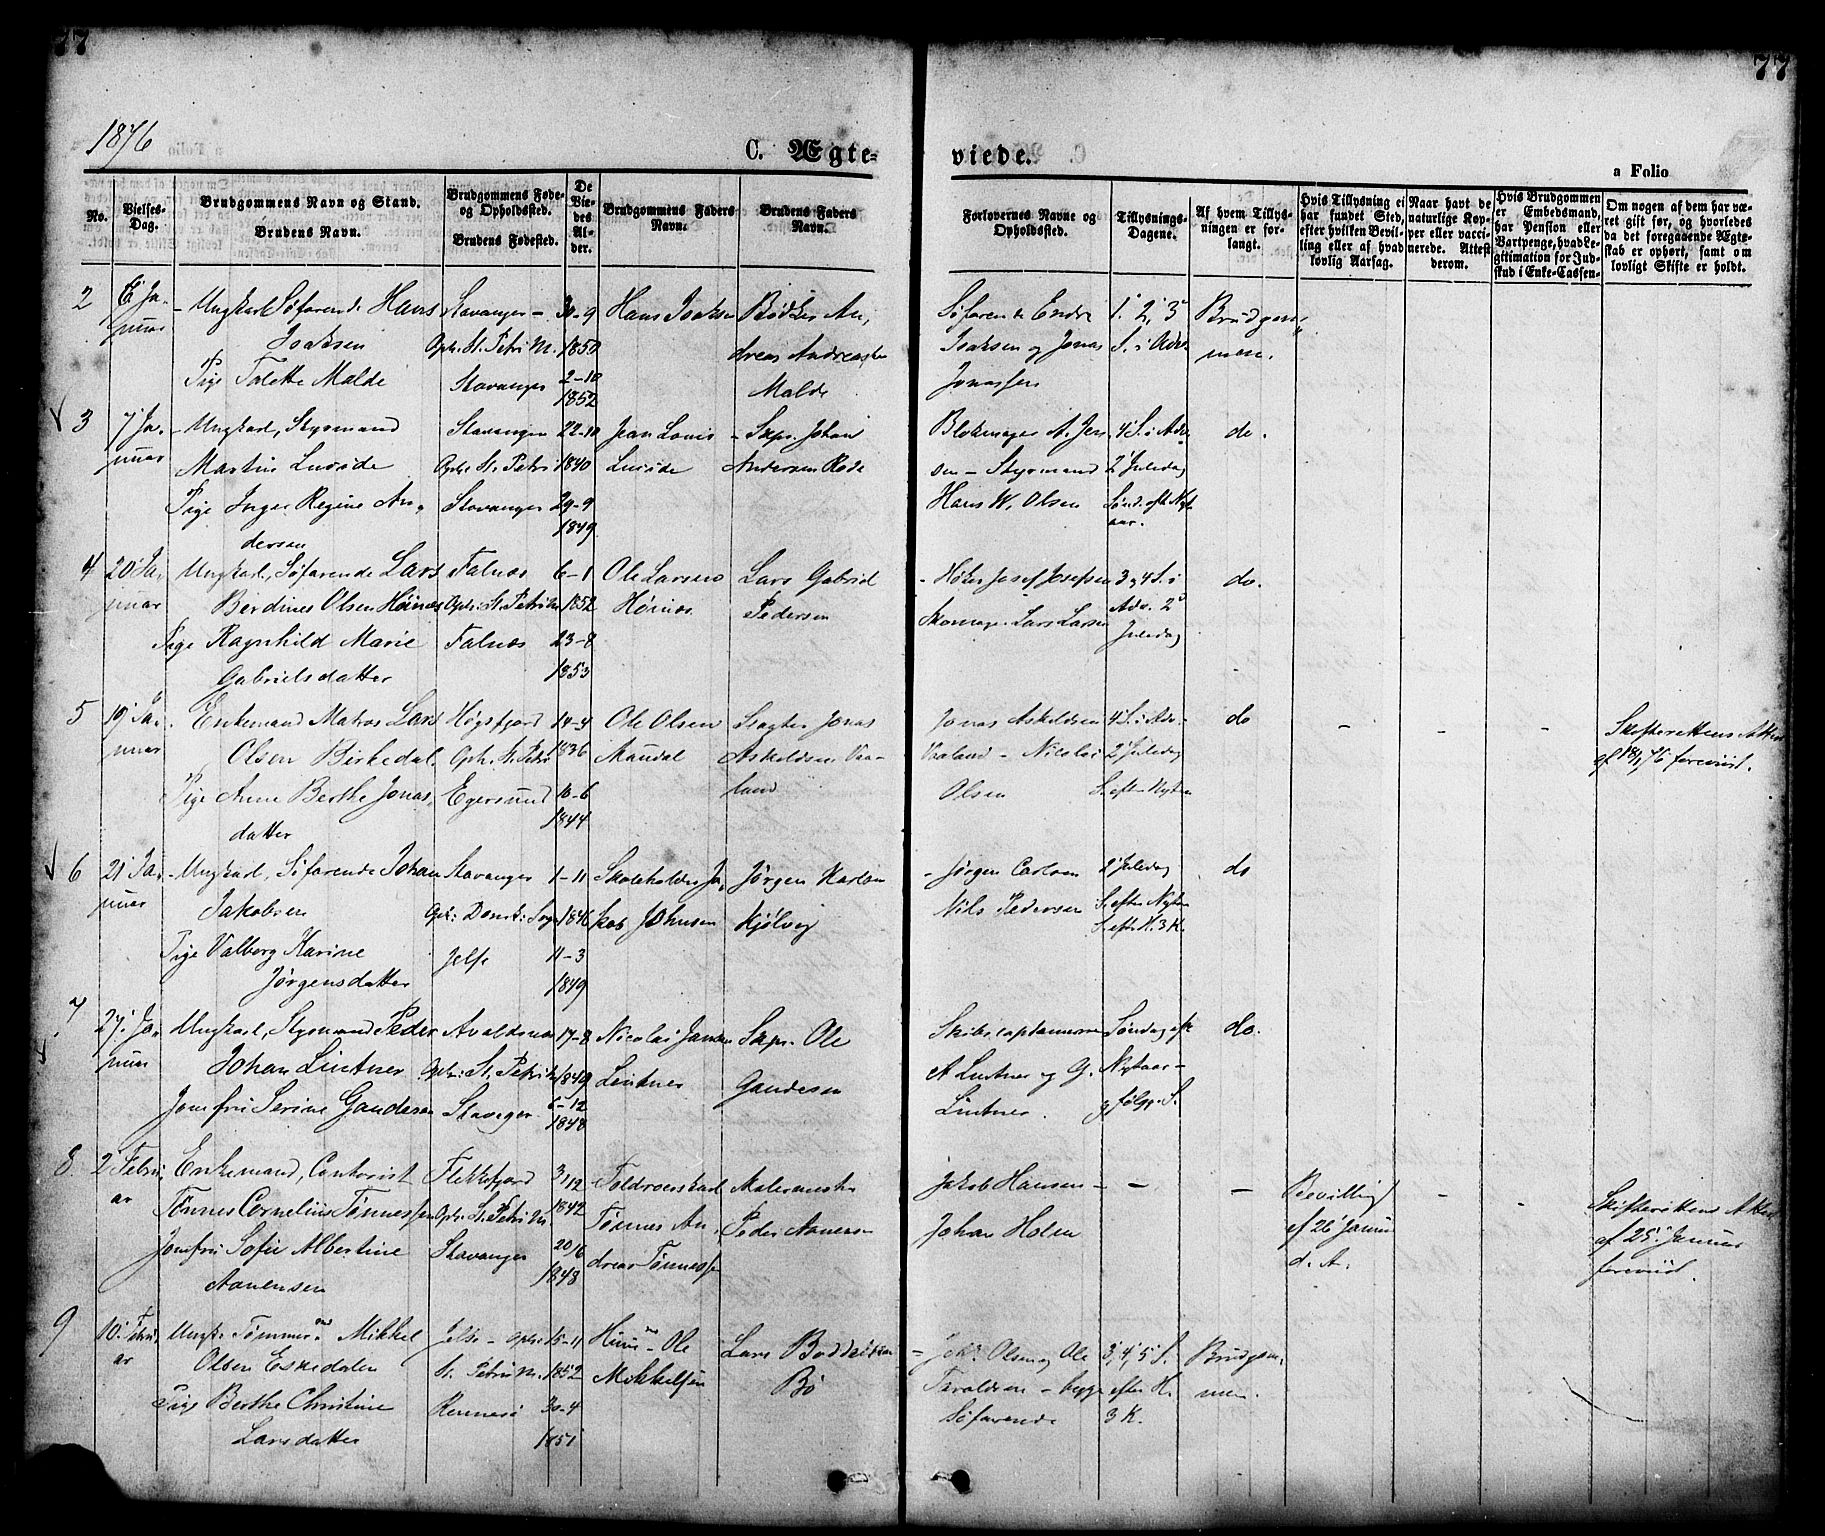 77
77
1876
C. Ægte-
viede.
a Folio
No.
Vielses-
Dag.
Brudgommens Navn og Stand.
Brudens Navn.
Brudgommens Føde-
og Opholdssted.
Brudens Fødested.
De
Vie-
des
Al-
der.
Brudgommens Faders
Navn.
Brudens Faders
Navn.
Forlovernes Navne og
Opholdssted.
Tillysnings-
Dagene.
Af hvem Tillys-
ningen er for-
langt.
Hvis Tillysning ei
har fundet Sted,
efter hvilken Bevil-
ling eller af hvad
lovlig Aarsag.
Naar havt de
naturlige Kop-
per eller vacci-
nerede. Attest
derom.
Hvis Brudgommen
er Embedsmand,
har Pension eller
Vartpenge, hvad Le-
gitimation for Ind-
skud i Enke-Cassen-
Om nogen af dem har væ-
ret gift før, og hvorledes
da det foregaaende Ægte-
skab er ophørt, samt om
lovligt Skifte er holdt.
2
6 Ja-
nuar
Ungkarl Søfarende Hans
Isaksen
Pige Talette Malde
Stavanger -
Oph. St. Petri M.
Stavanger
30-9
1850
2-10
1852
Hans Isaksen
Bødker An-
dreas Andreassen
Malde
Søfarende Endre
Isaksen og Jonas
Jonassen
1, 2, 3
S. i Adv.
Brudgom-
men.
3
7 Ja-
nuar
Ungkarl, Styrmand
Martin Lusøde
Pige Inger Regine An-
dersen
Stavanger
Oph. St. Petri
Stavanger
22-10
1840
29-9
1849
Jean Louis
Lusøde
Skpr. Johan
Andersen Rode
Blokmager A. Jen-
sen - Styrmand
Hans W. Olsen
4 S. i Adv.
2 Juledag
Sønd. eft. Nyt-
aar.
do.
4
20 Ja-
nuar
Ungkarl, Søfarende Lars
Berdines Olsen Høinæs
Pige Ragnhild Marie
Gabrielsdatter
Falnæs
Oph. St. Petri M
Falnæs
6-1
1852
23-8
1853
Ole Larsen
Høinæs
Lars Gabriel
Pedersen
Josef Josefsen
Skomager Lars Larsen
3 og 4 S. i
Adv. 2
Juledag
do.
5
19 Ja-
nuar
Enkemand Matros Lars
Olsen Birkedal
Pige Anne Berthe Jonas-
datter
Høgsfjord
Oph. St. Petri
Egersund
14-4
1836
10-6
1844
Ole Olsen
Maudal
Slagter Jonas
Askeldsen Vaa-
land
Jonas Askeldsen
Vaaland - Nicolai
Olsen
4 S. i Adv.
2 Juledag
S. eft. Nytaar
do
-
-
-
Skifterettens Attest
af 18/1 76 foreviist.
6
21 Ja-
nuar
Ungkarl, Søfarende Johan
Jakobsen
Pige Valborg Karine
Jørgensdatter
Stavanger
Oph: Domk: Sogn
Jelse
1-11
1846
11-3
1849
Skoleholder Ja-
kob Johnsen
Jørgen Karlsen
Kjølvig
Jørgen Carlsen
Nils Pedersen
2 Juledag
S. efter Nytaar
S. eft. H. 3 K.
do
7
27. Ja-
nuar
Ungkarl, Styrmand Peder
Johan Lintner
Jomfru Serine Gandesen
Avaldsnæs
Oph: St. Petri M
Stavanger
17-8
1840
6-12
1848
Nicolai Jansen
Lintner
Skpr. Ole
Gandesen
Skibscaptainerne
A Lintner og G.
Lintner.
Søndag eft
Nytaar
og følgg. S.
do.
8
2 Febru-
ar
Enkemand, Contorist
Tønnes Cornelius Tønnessen
Jomfru Sofie Albertine
Aanensen
Flekkefjord
Oph. St. Petri M.
Stavanger
3/12
1842
20/6
1848
Toldroerskarl
Tønnes An-
dreas Tønnessen
Malermester
Peder Aanensen
Jakob Hansen
Johan Holm
-
-
Bevilling
af 26 Januar
d. A.
-
-
Skifterettens Attest
af 25 Januar
foreviist.
9
10. Febru-
ar
Ungk. Tømmermd Mikkel
Olsen Eskedalen
Pige Berthe Christine
Larsdatter
Jelse - Oph:
St. Petri M.
Rennesø
15-11
1852
30-4
1851
Huusmd Ole
Mikkelsen
Lars
Bø
Joh. Olsen og Ole
Taraldsen - begge
Søfarende
3, 4, 5 S.
efter H.
3 K.
Brudgom-
men